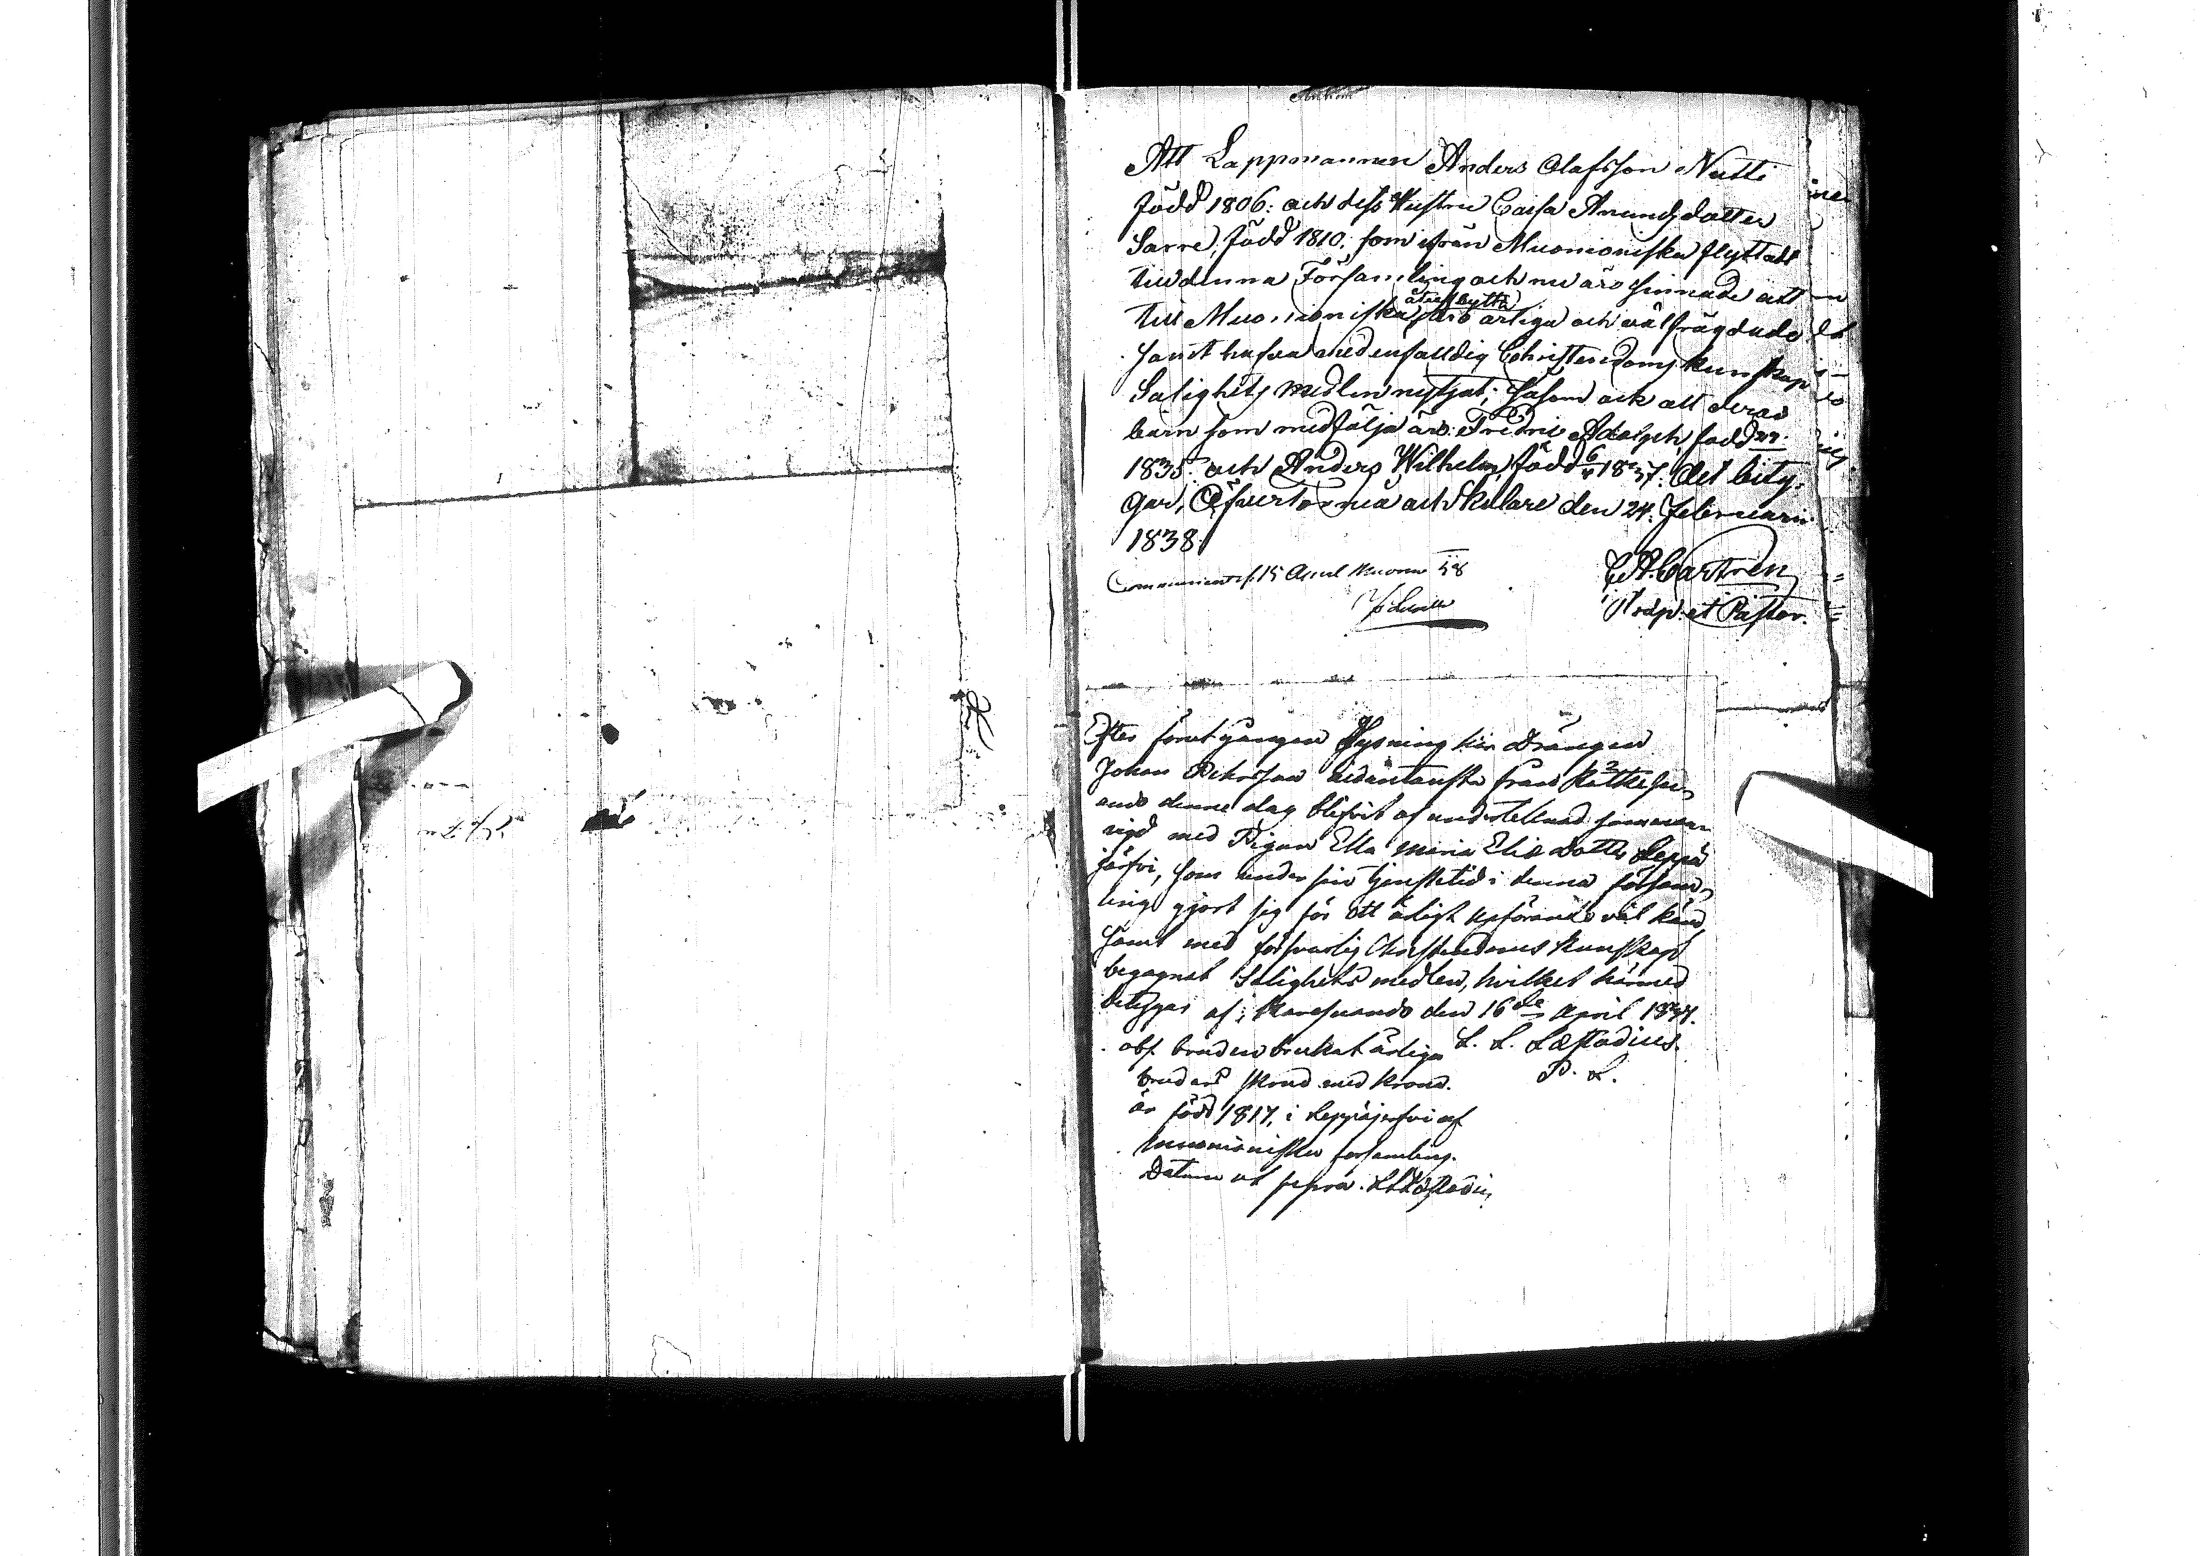 Att Lappmannen Anders Olafsson Nutti
född 1806: och dess Hustru Caisa Anundsdotter
Sarre, född 1810. som ifrån Muonioniska flyttadt
till denna Församling och nu äro sinnade att
återflytta
till Muonioniska, äro ärliga och välfrägdade
samt hafva med enfalldig Christendoms kunskap
Salighets medlen nyttjat; Såsom ock att deras
barn som medfölja äro: Fredric Adolph, född
1835. och Anders Wilhelm, född 1837. Det bety-
gar, Öfvertorneå och Skulare den 24. Februarii
1838.
15 April
Castrén
Præp. et Pastor.
Efter föregången Lysning har Drängen
Johan Pehrsson från Kätkesu-
ando denne dag blifvit af undertecknad samman-
vigd med Pigan Ella Maria Elix Dotter Leppä
järfvi, som under sin tjenstetid i denna försam-
ling gjort sig för ett ärligt upförande väl känd,
samt med försvarlig Christendoms kunskap
begagnat Salighets medlen, hvilket härmed
betygas af; Karesuando den 16de April 1837.
obs. bruden brukat ärliga L. L. Læstadius.
brudars skrud med krona. P. L.
är född 1817, i Leppäjerfvi af
Muonioniska församling.
Datum ut supra. LLLæstadius